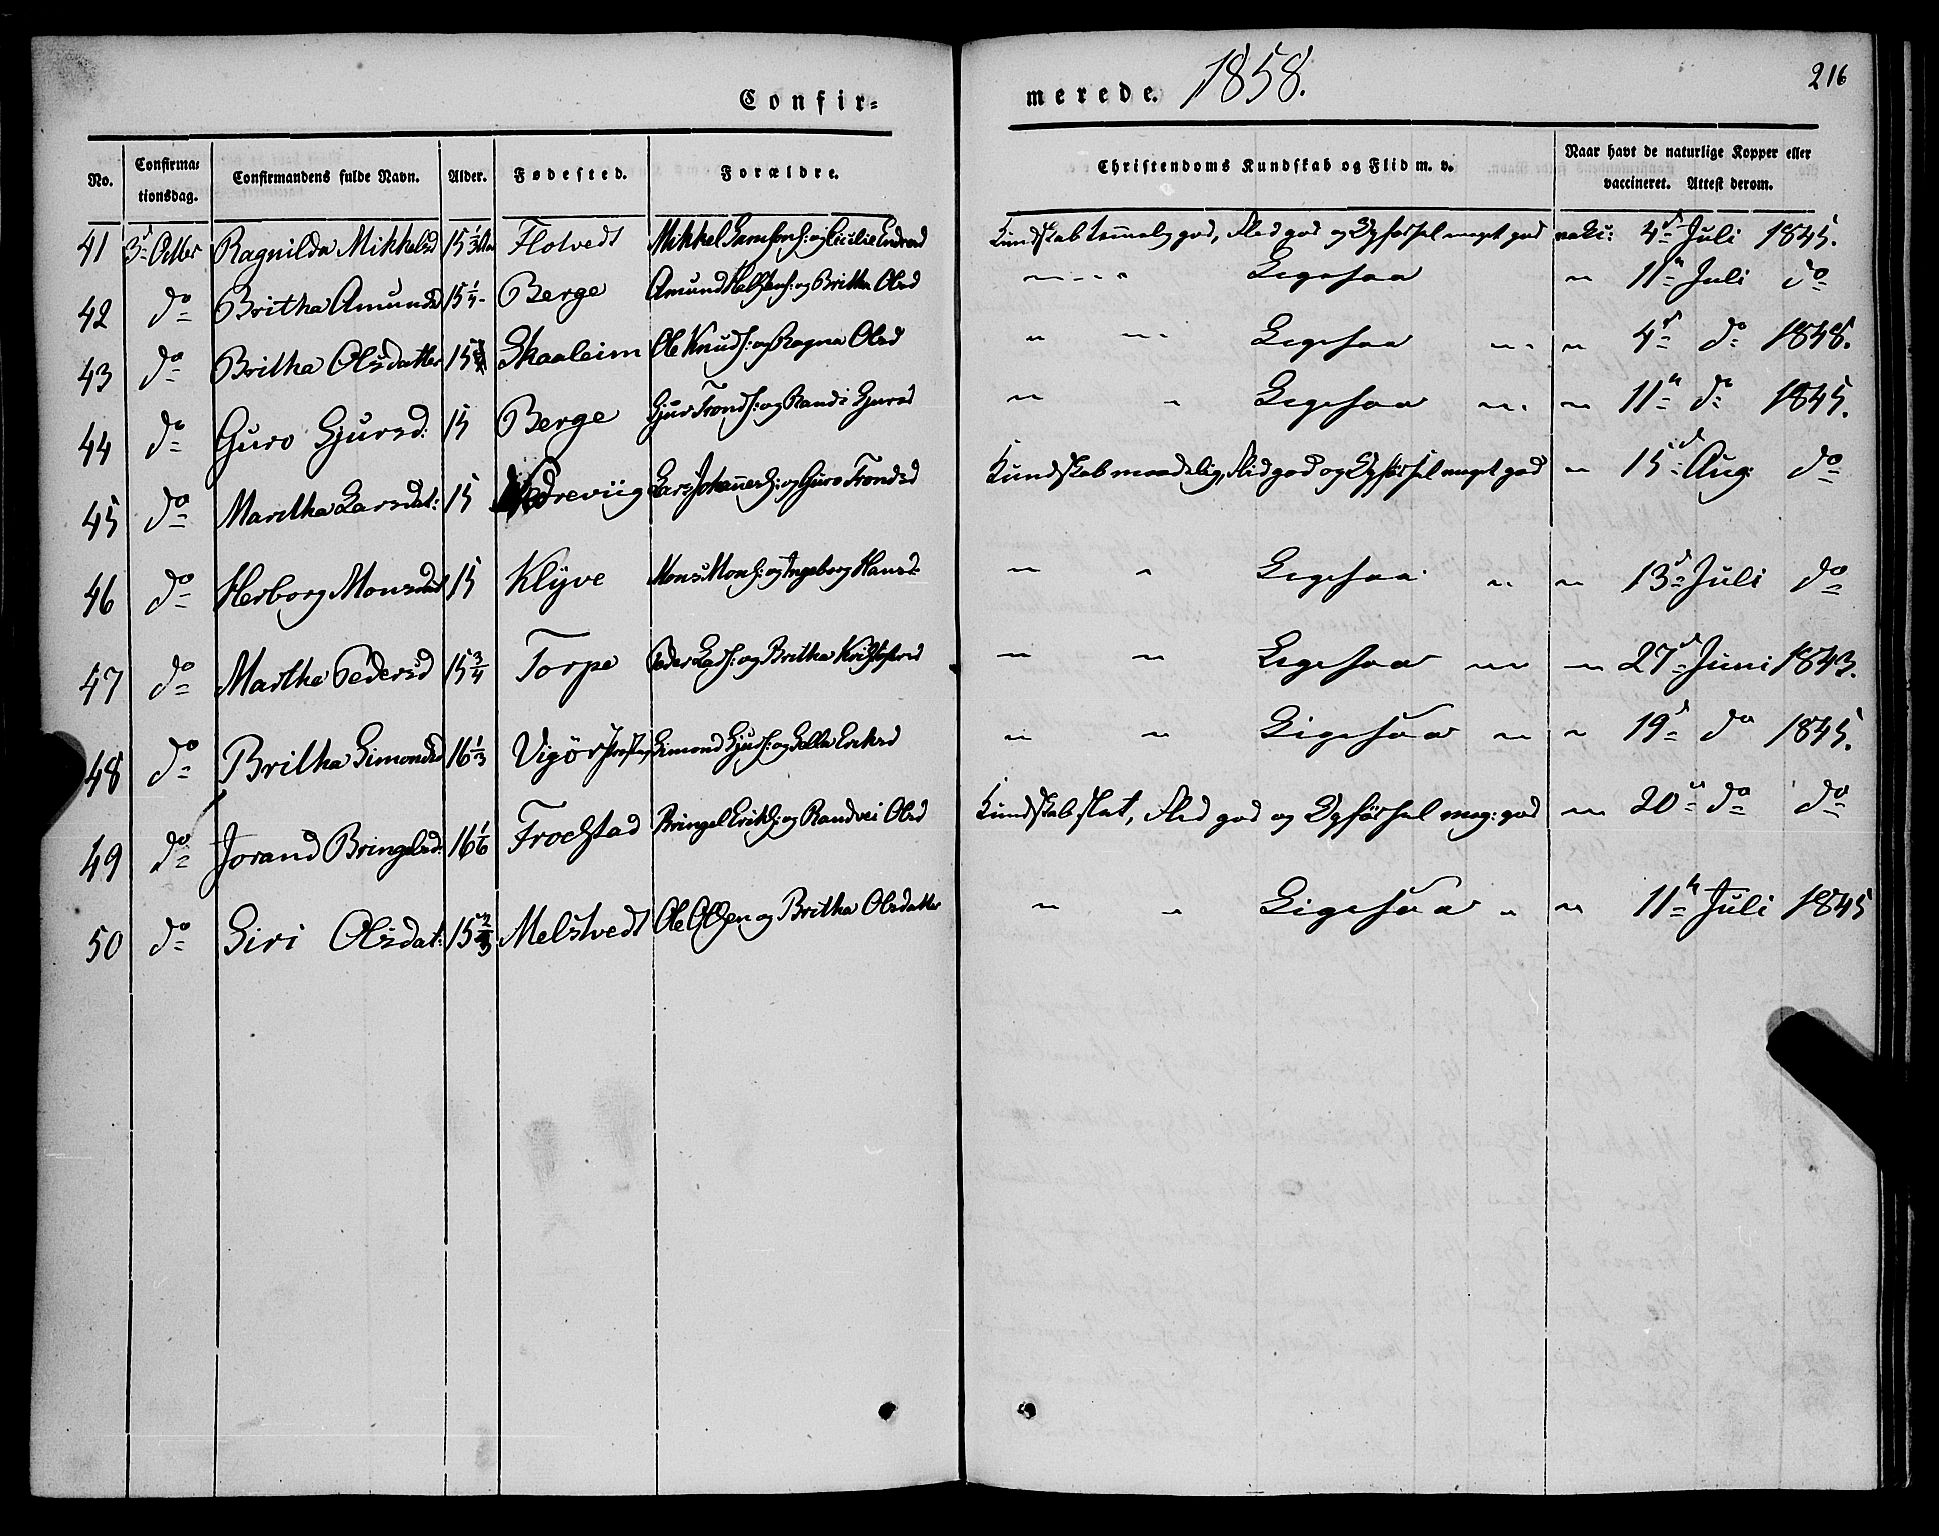 Confir-
merede. 1858.
216
No. Confirmationsdag. Confirmandens fulde Navn. Alder. Fødested. Forældre. Christendoms Kundskab og Flid m. v. Naar havt de naturlige Kopper eller vaccineret. Attest derom.
41 3d Octbr Ragnilda Mikkelsd 15 1/3 Flotvedt Mikkel Samsons: og Cecilie Endresd Kundskab temmelig god, Flid god og Opførsel meget god vakc: 4d Juli 1845.
42 do Britha Amundsd 15 1/4 Berge Amund Helgesens: og Britha Olsd " - - " Ligesaa " 11te Juli do
43 do Britha Olsdatter 15 Skaaleim Ole Knuds: og Ragna Olsd " " Ligesaa " " 4d do 1845.
44 do Guro Gjursd: 15 Berge Gjur Tronds: og Randi Gjursd " " Ligesaa " " 11te do 1845.
45 do Martha Larsdat: 15 Nedreviig Lars Johannes: og Guro Trondsd Kundskab maadelig, Flid god og Opførsel meget god " 15d Aug: do
46 do Herborg Monsdat 15 Klyve Mons Mons: og Ingeborg Hansd: " " Ligesaa " " 13d Juli do
47 do Martha Pedersd 15 3/4 Torpe Peder Lars: og Britha Kristofersd " " Ligesaa " " 27d Juni 1843.
48 do Britha Simonsd 16 1/3 Vigør Simond Gjurs: og Eriksd " " Ligesaa " " 19d do 1845.
49 do Jorand Bringelsd: 16 1/6 Trochstad Bringel Eriks: og Randvei Olsd Kundskab slet, Flid god og Opførsel meg: god " 20de do do
50 do Siri Olsdat: 15 2/3 Melstvedt Ole Olsen og Britha Olsdatter " " Ligesaa " " 11te Juli 1845